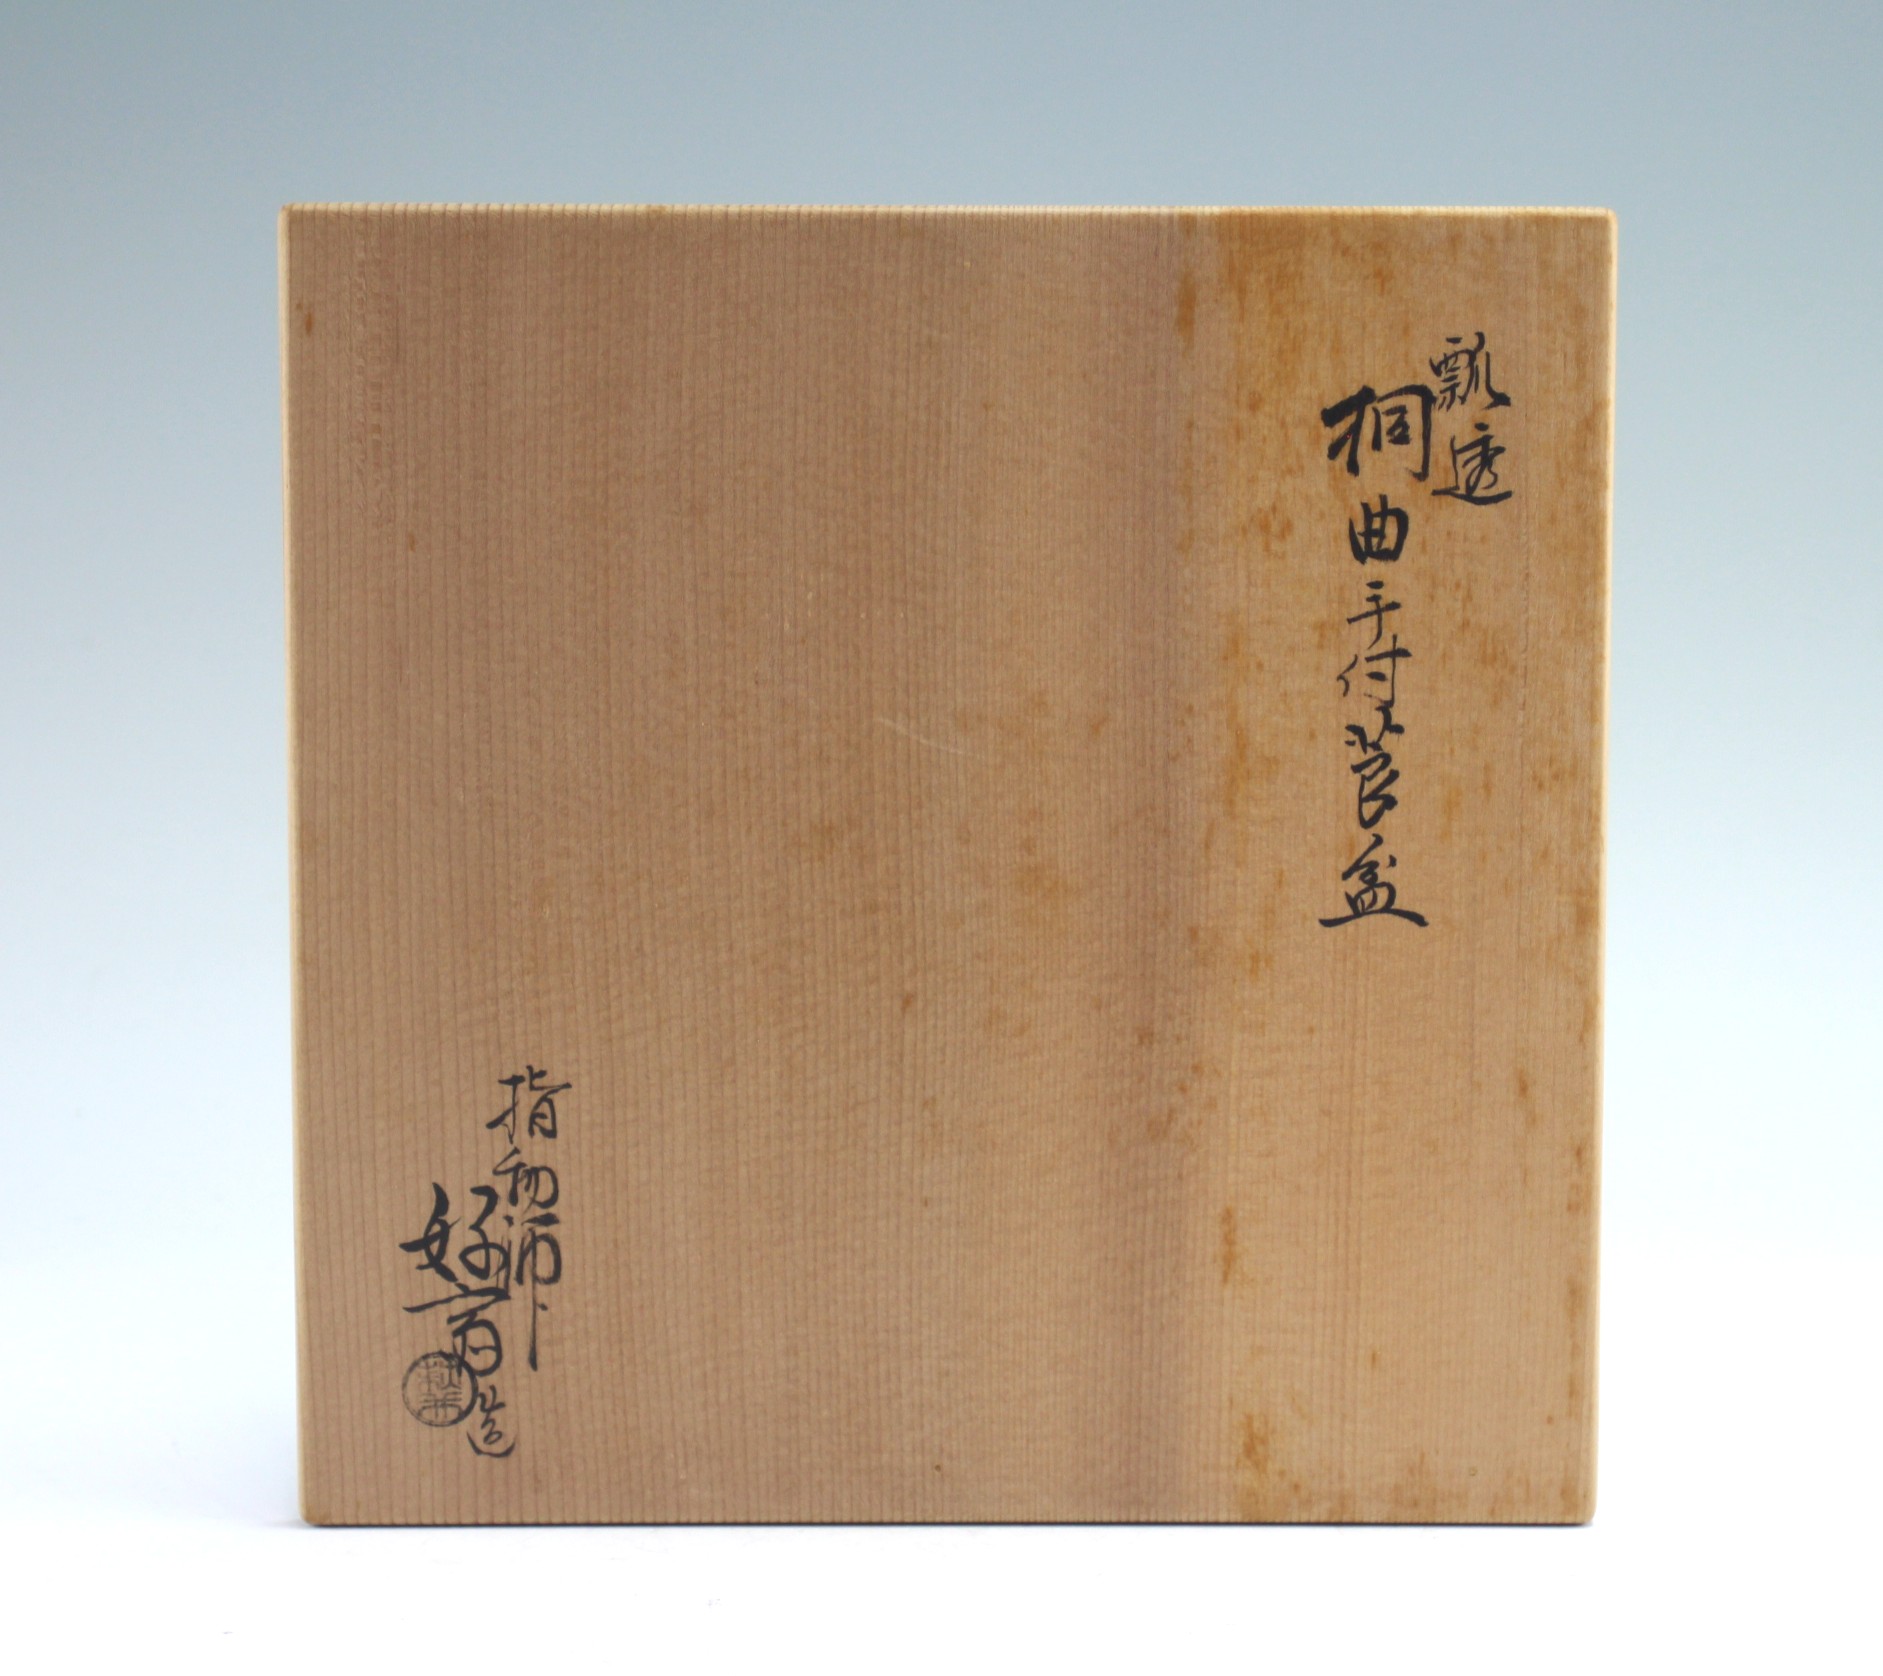 瓢透
桐曲手付莨盆
指物師
好斎造